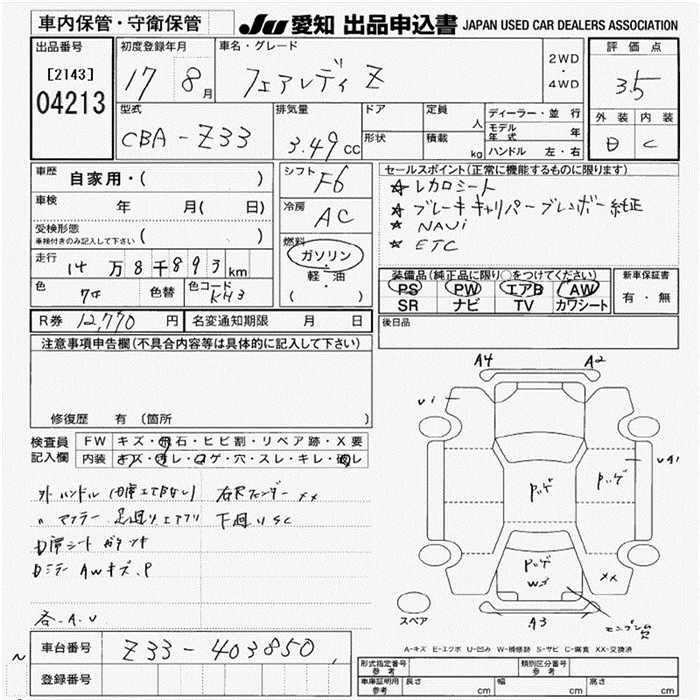 車内保管・守衛保管
JU 愛知 出品申込書 JAPAN USED CAR DEALERS ASSOCIATION
出品番号
[2143]
04213
初度登録年月
17 8月
車名・グレード
フェアレディ Z
2WD
・
4WD
評価点
3.5
外装 内装
B C
型式
CBA-Z33
排気量
3.49cc
ドア
形状
定員 人
積載 kg
ディーラー・並行
モデル年式 年
ハンドル 左・右
車歴 自家用・( )
車検 年 月( 日)
受検形態
車検付きのみ記入して下さい ( )
走行 14万8千893km
色
色替
色コード KH3
シフト F6
冷房 AC
燃料
ガソリン
・
軽・油
( )
セールスポイント(正常に機能するものに限ります)
★ レカロシート
★ ブレーキキャリパーブレンボー純正
★ NAVi
★ ETC
装備品(純正品に限り○をつけてください)
PS PW エアB AW
SR ナビ TV カワシート
新車保証書
有・無
R券 12,770円
名変通知期限 月 日
後日品
注意事項申告欄(不具合内容等は具体的に記入して下さい)
修復歴 有 (箇所 )
検査員記入欄
FW キズ・飛石・ヒビ割・リペア跡・X要
内装 キズ・汚レ・コゲ・穴・スレ・キレ・破レ
外ハンドル
右Rフェンダー XX
〃 マフラー 足廻りエアフリ
下廻りSC
D席シート
Dミラー AWキズ.P
各-A.U
A4
A2
U1
U41
XX
A3
スペア
A-キズ E-エクボ U-凹み W-補修跡 S-サビ C-腐食 XX-交換済
車台番号 Z33-403850
登録番号
形式指定番号
参考
類別区分番号
参考
車庫証明用
参考
長さ cm 幅 cm 高さ cm